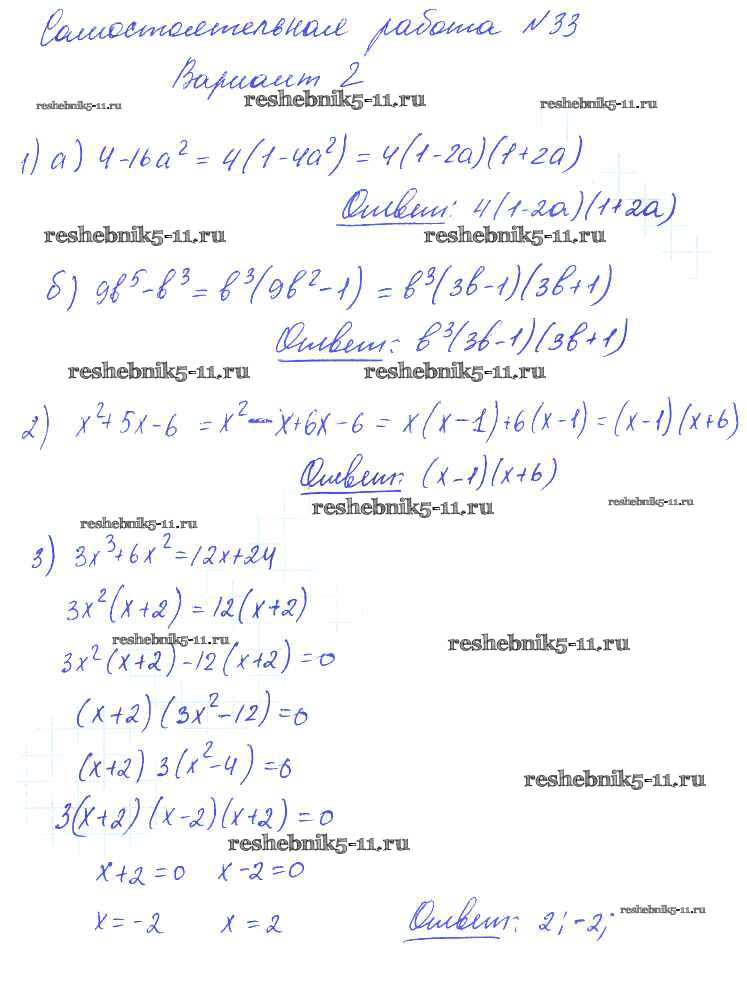 Самостоятельная работа №33
Вариант 2
reshebnik5-11.ru reshebnik5-11.ru reshebnik5-11.ru
1) а) 4-16a² = 4(1-4a²) = 4(1-2a)(1+2a)
Ответ: 4(1-2a)(1+2a)
reshebnik5-11.ru reshebnik5-11.ru
б) 9b⁵-b³ = b³(9b²-1) = b³(3b-1)(3b+1)
Ответ: b³(3b-1)(3b+1)
reshebnik5-11.ru reshebnik5-11.ru
2) x²+5x-6 = x²-x+6x-6 = x(x-1)+6(x-1) = (x-1)(x+6)
Ответ: (x-1)(x+6)
reshebnik5-11.ru reshebnik5-11.ru
reshebnik5-11.ru
3) 3x³+6x²=12x+24
3x²(x+2) = 12(x+2)
reshebnik5-11.ru reshebnik5-11.ru
3x²(x+2)-12(x+2)=0
(x+2)(3x²-12)=0
(x+2) 3(x²-4)=0
reshebnik5-11.ru
3(x+2)(x-2)(x+2)=0
reshebnik5-11.ru
x+2=0 x-2=0
x=-2 x=2 Ответ: 2; -2;
reshebnik5-11.ru